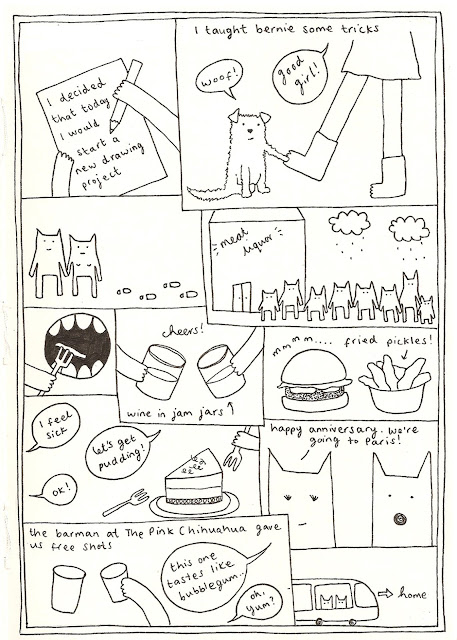 I decided
that today
I would
start a
new drawing
project
I taught bernie some tricks
woof!
good
girl!
meat
liquor
cheers!
wine in jam jars↑
mmmm.... fried pickles!
I feel
sick
let's get
pudding?
ok!
happy anniversary. we're
going to Paris!
the barman at The Pink Chihuahua gave
us free shots
this one
tastes like
bubblegum...
oh.
yum?
⇒ home